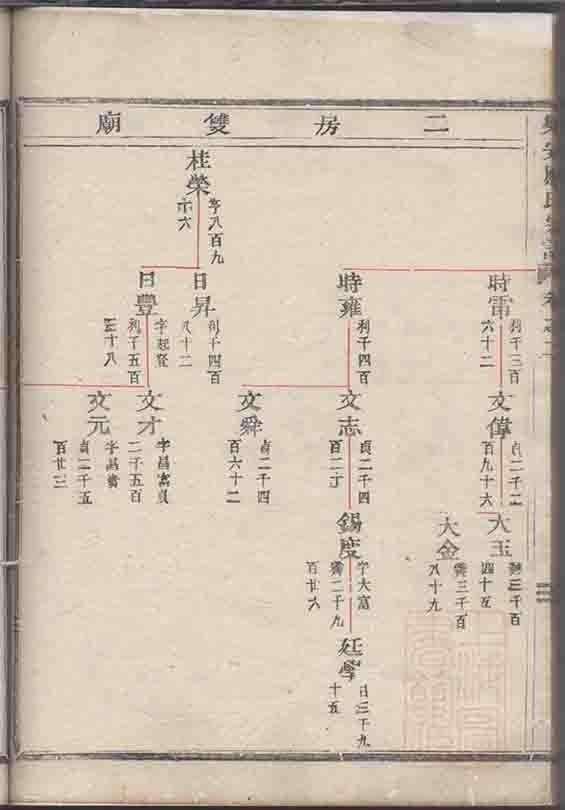 二房雙廟
時雷
利千三百
六十二
文偉
百九十六
大玉
四十五
大金
霽三千百
八十九
時雍
利千四百
文志
貞二千四
錫度
字大富
霽二千九
百廿六
廷學
日三千九
十五
文舜
貞二千四
百六十二
桂榮
亨八百九
十六
日昇
利千四百
八十二
日豐
字起賢
利千五百
四十八
文才
字昌富貞
二千五百
文元
字昌壽
貞二千五
百廿三